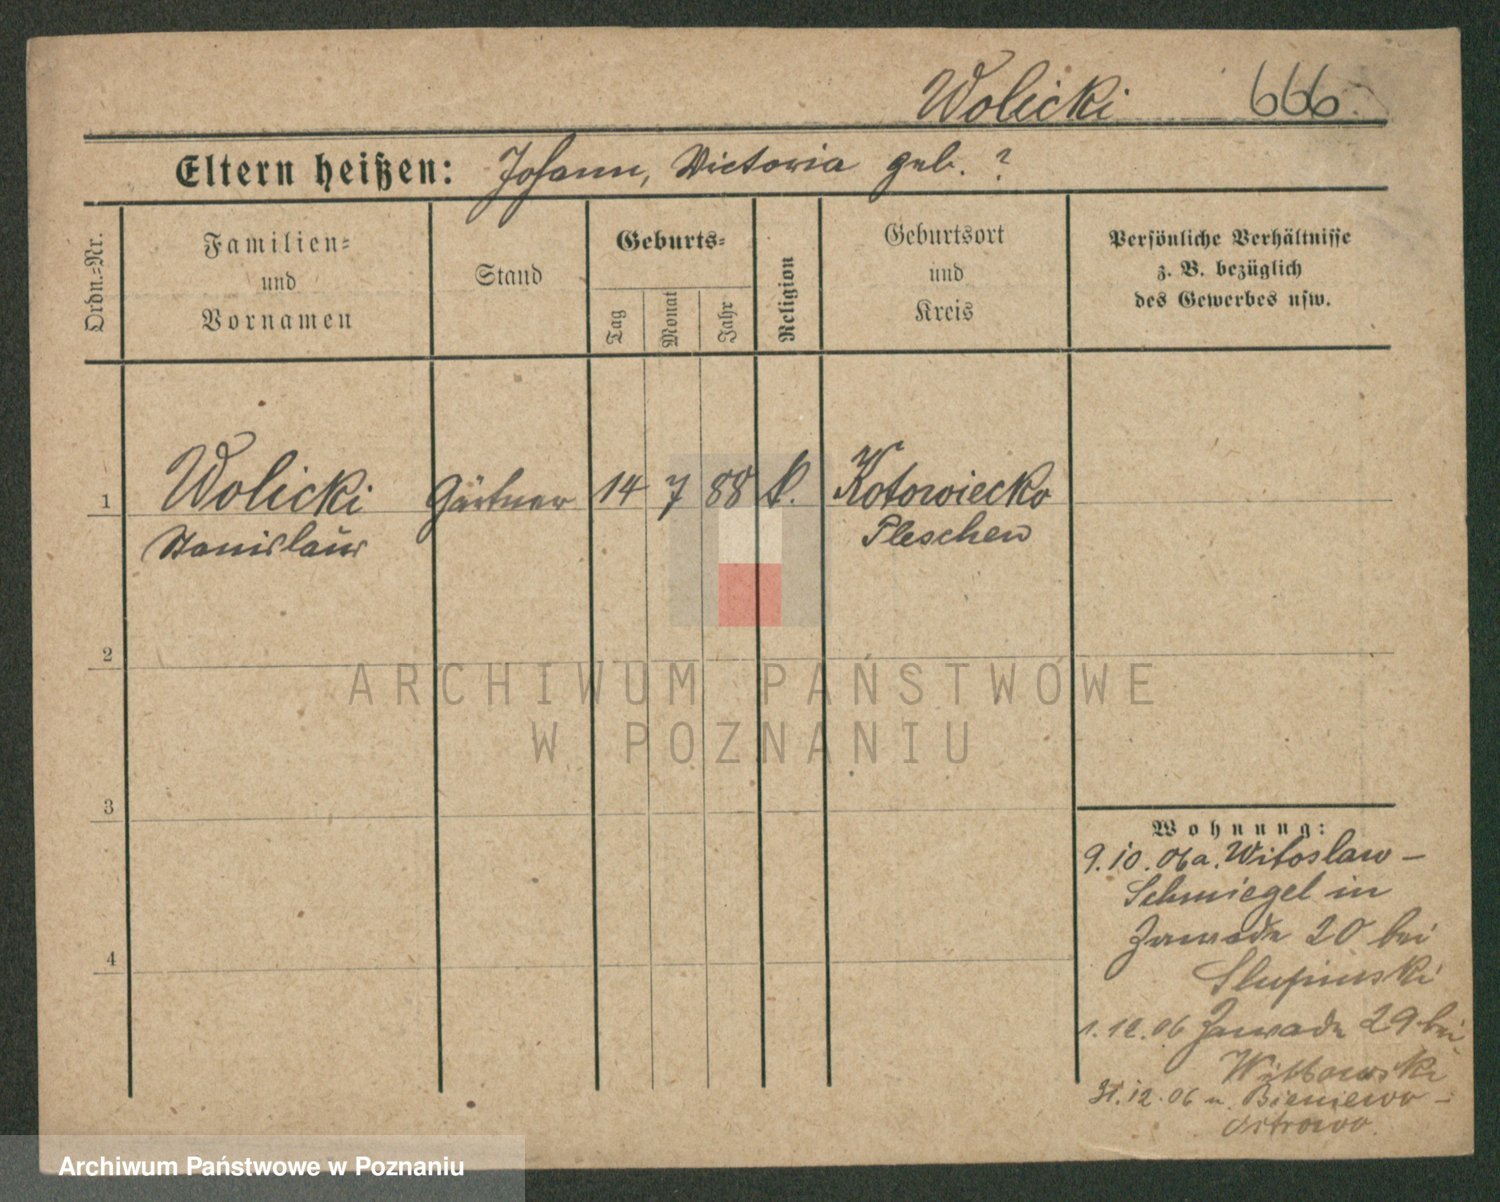 Wolicki 666.
Eltern heißen: Johann, Victoria geb. ?
Ordn.-Nr.
Familien-
und
Vornamen
Stand
Geburts-
Tag
Monat
Jahr
Religion
Geburtsort
und
Kreis
Persönliche Verhältnisse
z. B. bezüglich
des Gewerbes usw.
1 Wolicki Gärtner 14 7 88 k. Kotowiecko
Stanislaus Pleschen
2
ARCHIWUM PAŃSTWOWE
W POZNANIU
3
Wohnung:
9.10.06 a. Witoslaw-
Schmiegel in
Zawade 20 bei
Slupinski
4
1.12.06 Zawade 29 bei
31.12.06 n. Bieniewo-
Ostrowo.
Archiwum Państwowe w Poznaniu